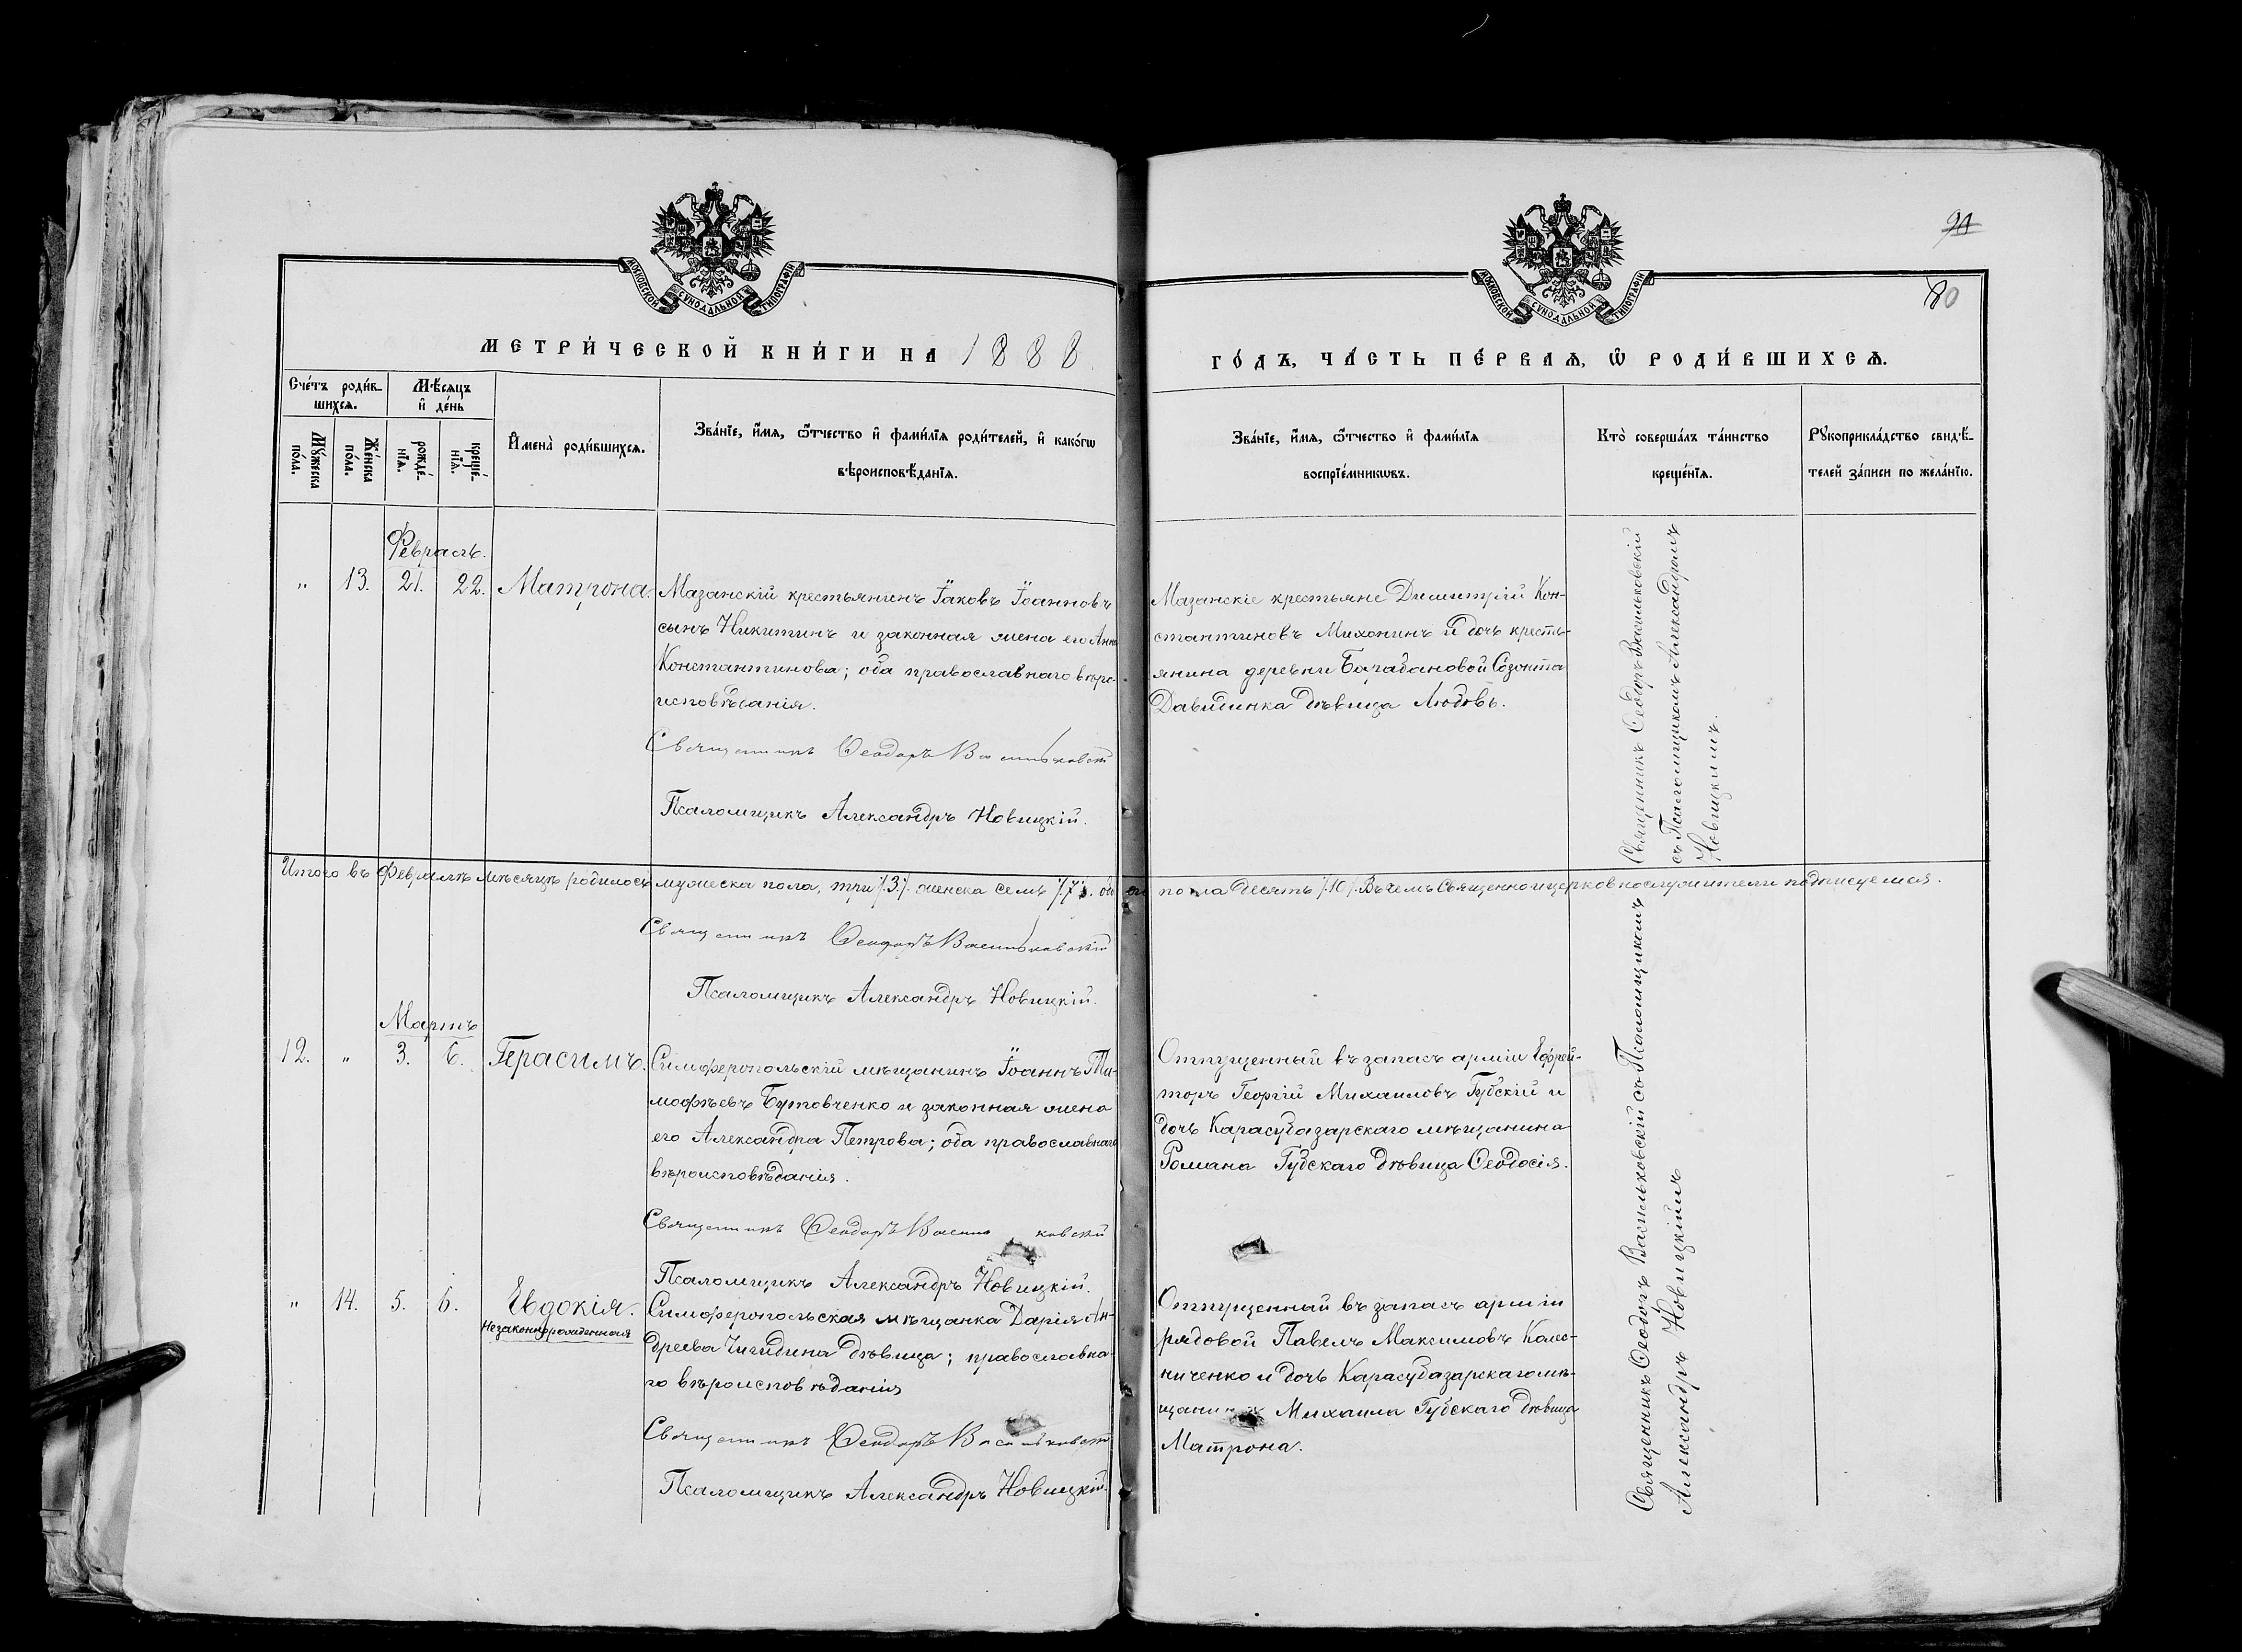 94
80
МОСКОВСКОЙ СУНОДАЛЬНОЙ ТИПОГРАФІИ
МОСКОВСКОЙ СУНОДАЛЬНОЙ ТИПОГРАФІИ
МЕТРИ́ЧЕСКОЙ КНИ́ГИ НА 1888
ГО́ДЪ, ЧА́СТЬ ПЕ́РВАѦ, Ѡ РОДИ́ВШИХСѦ.
Сче́тъ роди́в-
шихсѧ.
Мꙋ́жеска
по́ла.
Же́нска
по́ла.
Мѣ́сѧцъ
и҆ де́нь
рожде́-
нїѧ.
креще́-
нїѧ.
И҆мена̀ роди́вшихсѧ.
Зва́нїе, и҆́мѧ, ѻ҆́тчество и҆ фами́лїѧ роди́телей, и҆ како́гѡ
вѣроисповѣ́данїѧ.
Зва́нїе, и҆́мѧ, ѻ҆́тчество и҆ фами́лїѧ
воспрїе́мникѡвъ.
Кто̀ соверша́лъ та́инство
креще́нїѧ.
Рꙋкоприкла́дство свидѣ́-
телей за́писи по жела́нїю.
Февраль.
" 13. 21. 22. Матрона.
Мазанскій крестьянинъ Іаковъ Іоанновъ
сынъ Никитинъ и законная жена его Анна
Константинова; оба православнаго вѣро-
исповѣданія.
Священникъ Ѳеодоръ Васильковскій
Псаломщикъ Александръ Новицкій.
Мазанскіе крестьяне Димитрій Кон-
стантиновъ Михонинъ и дочь кресть-
янина деревни Барабановой Созонта
Давиденка дѣвица Любовь.
Священникъ Ѳеодоръ Васильковскій
съ Псаломщикомъ Александромъ
Новицкимъ.
Итого въ Февралѣ мѣсяцѣ родилось мужеска пола, три /3/. женска семь /7/. обоего пола десять /10/. Въ чемъ Священноицерковнослужители подписуемся.
Священникъ Ѳеодоръ Васильковскій
Псаломщикъ Александръ Новицкій.
Мартъ
12. " 3. 6. Герасимъ.
Симферопольскій мѣщанинъ Іоаннъ Ти-
моѳѣевъ Бутовченко и законная жена
его Александра Петрова; оба православнаго
вѣроисповѣданія.
Священникъ Ѳеодоръ Васильковскій
Псаломщикъ Александръ Новицкій.
Отпущенный въ запасъ арміи Ефрей-
торъ Георгій Михаиловъ Губскій и
дочь Карасубазарскаго мѣщанина
Романа Губскаго дѣвица Ѳеодосія.
" 14. 5. 6. Евдокія.
Незаконнорожденная
Симферопольская мѣщанка Дарія Ан-
дреева Чигидина дѣвица; православна-
го вѣроисповѣданія
Священникъ Ѳеодоръ Васильковскій
Псаломщикъ Александръ Новицкій.
Отпущенный въ запасъ арміи
рядовой Павелъ Максимовъ Колес-
ниченко и дочь Карасубазарскаго мѣ-
щанина Михаила Губскаго дѣвица
Матрона.
Священникъ Ѳеодоръ Васильковскій съ Псаломщикомъ
Александръ Новицкимъ